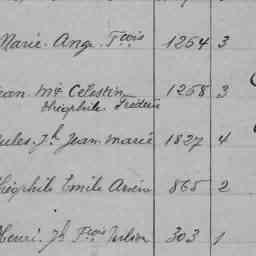 Marie Ange Fçois 1254 3
ean Mie Célestin 1258 3
Théophile Frédéric
ules Jh Jean Marie 1827 4
héophile Emile 865 2
Henri Jh Fçois 303 1